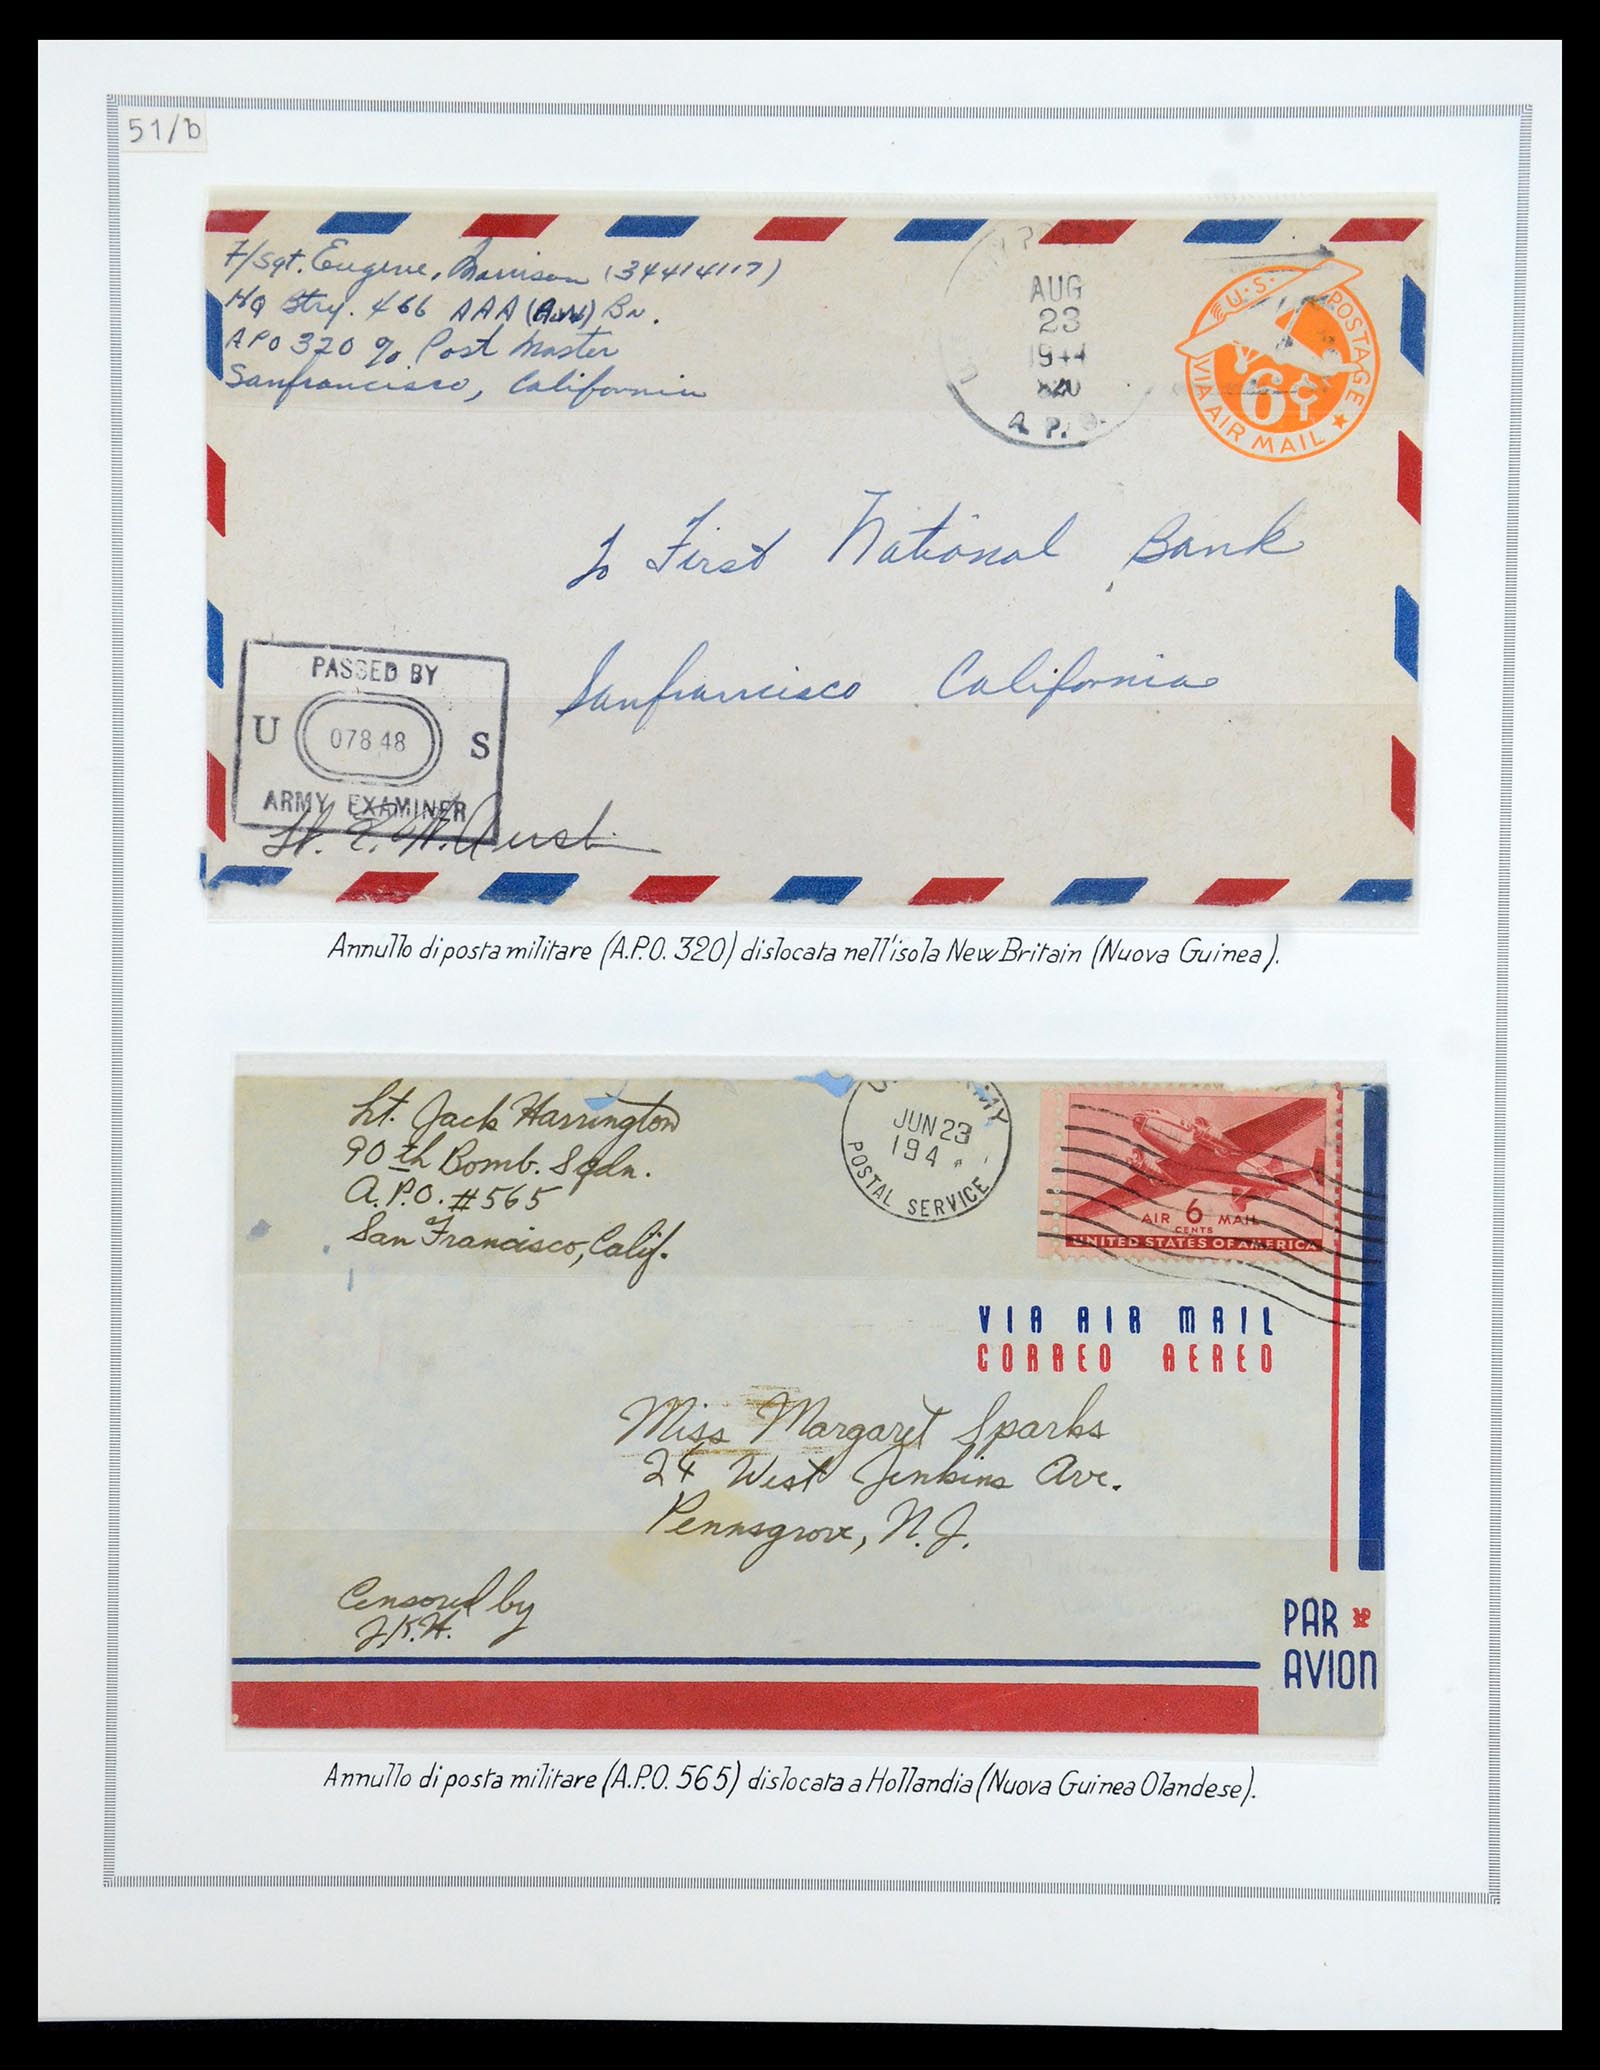 51/b
T/Sgt. Eugene, Harrison (34414117)
HQ Btry. 466 AAA (A.W) Bn.
APO 320 % Post Master
Sanfrancisco, California
AUG
23
1944
A. P. O.
U.S. POSTAGE
6¢
VIA AIR MAIL
To First National Bank
Sanfrancisco California
PASSED BY
U 07848 S
ARMY EXAMINER
Annullo di posta militare (A.P.O. 320) dislocata nell'isola New Britain (Nuova Guinea).
Lt. Jack Harrington
90th Bomb. Sqdn.
A.P.O. #565
San Francisco, Calif.
JUN 23
194
POSTAL SERVICE
AIR 6 MAIL
CENTS
UNITED STATES OF AMERICA
VIA AIR MAIL
CORREO AEREO
Miss Margaret Sparks
24 West Jenkins Ave.
Pennsgrove, N.J.
Censored by
J.K.H.
PAR
AVION
Annullo di posta militare (A.P.O. 565) dislocata a Hollandia (Nuova Guinea Olandese).